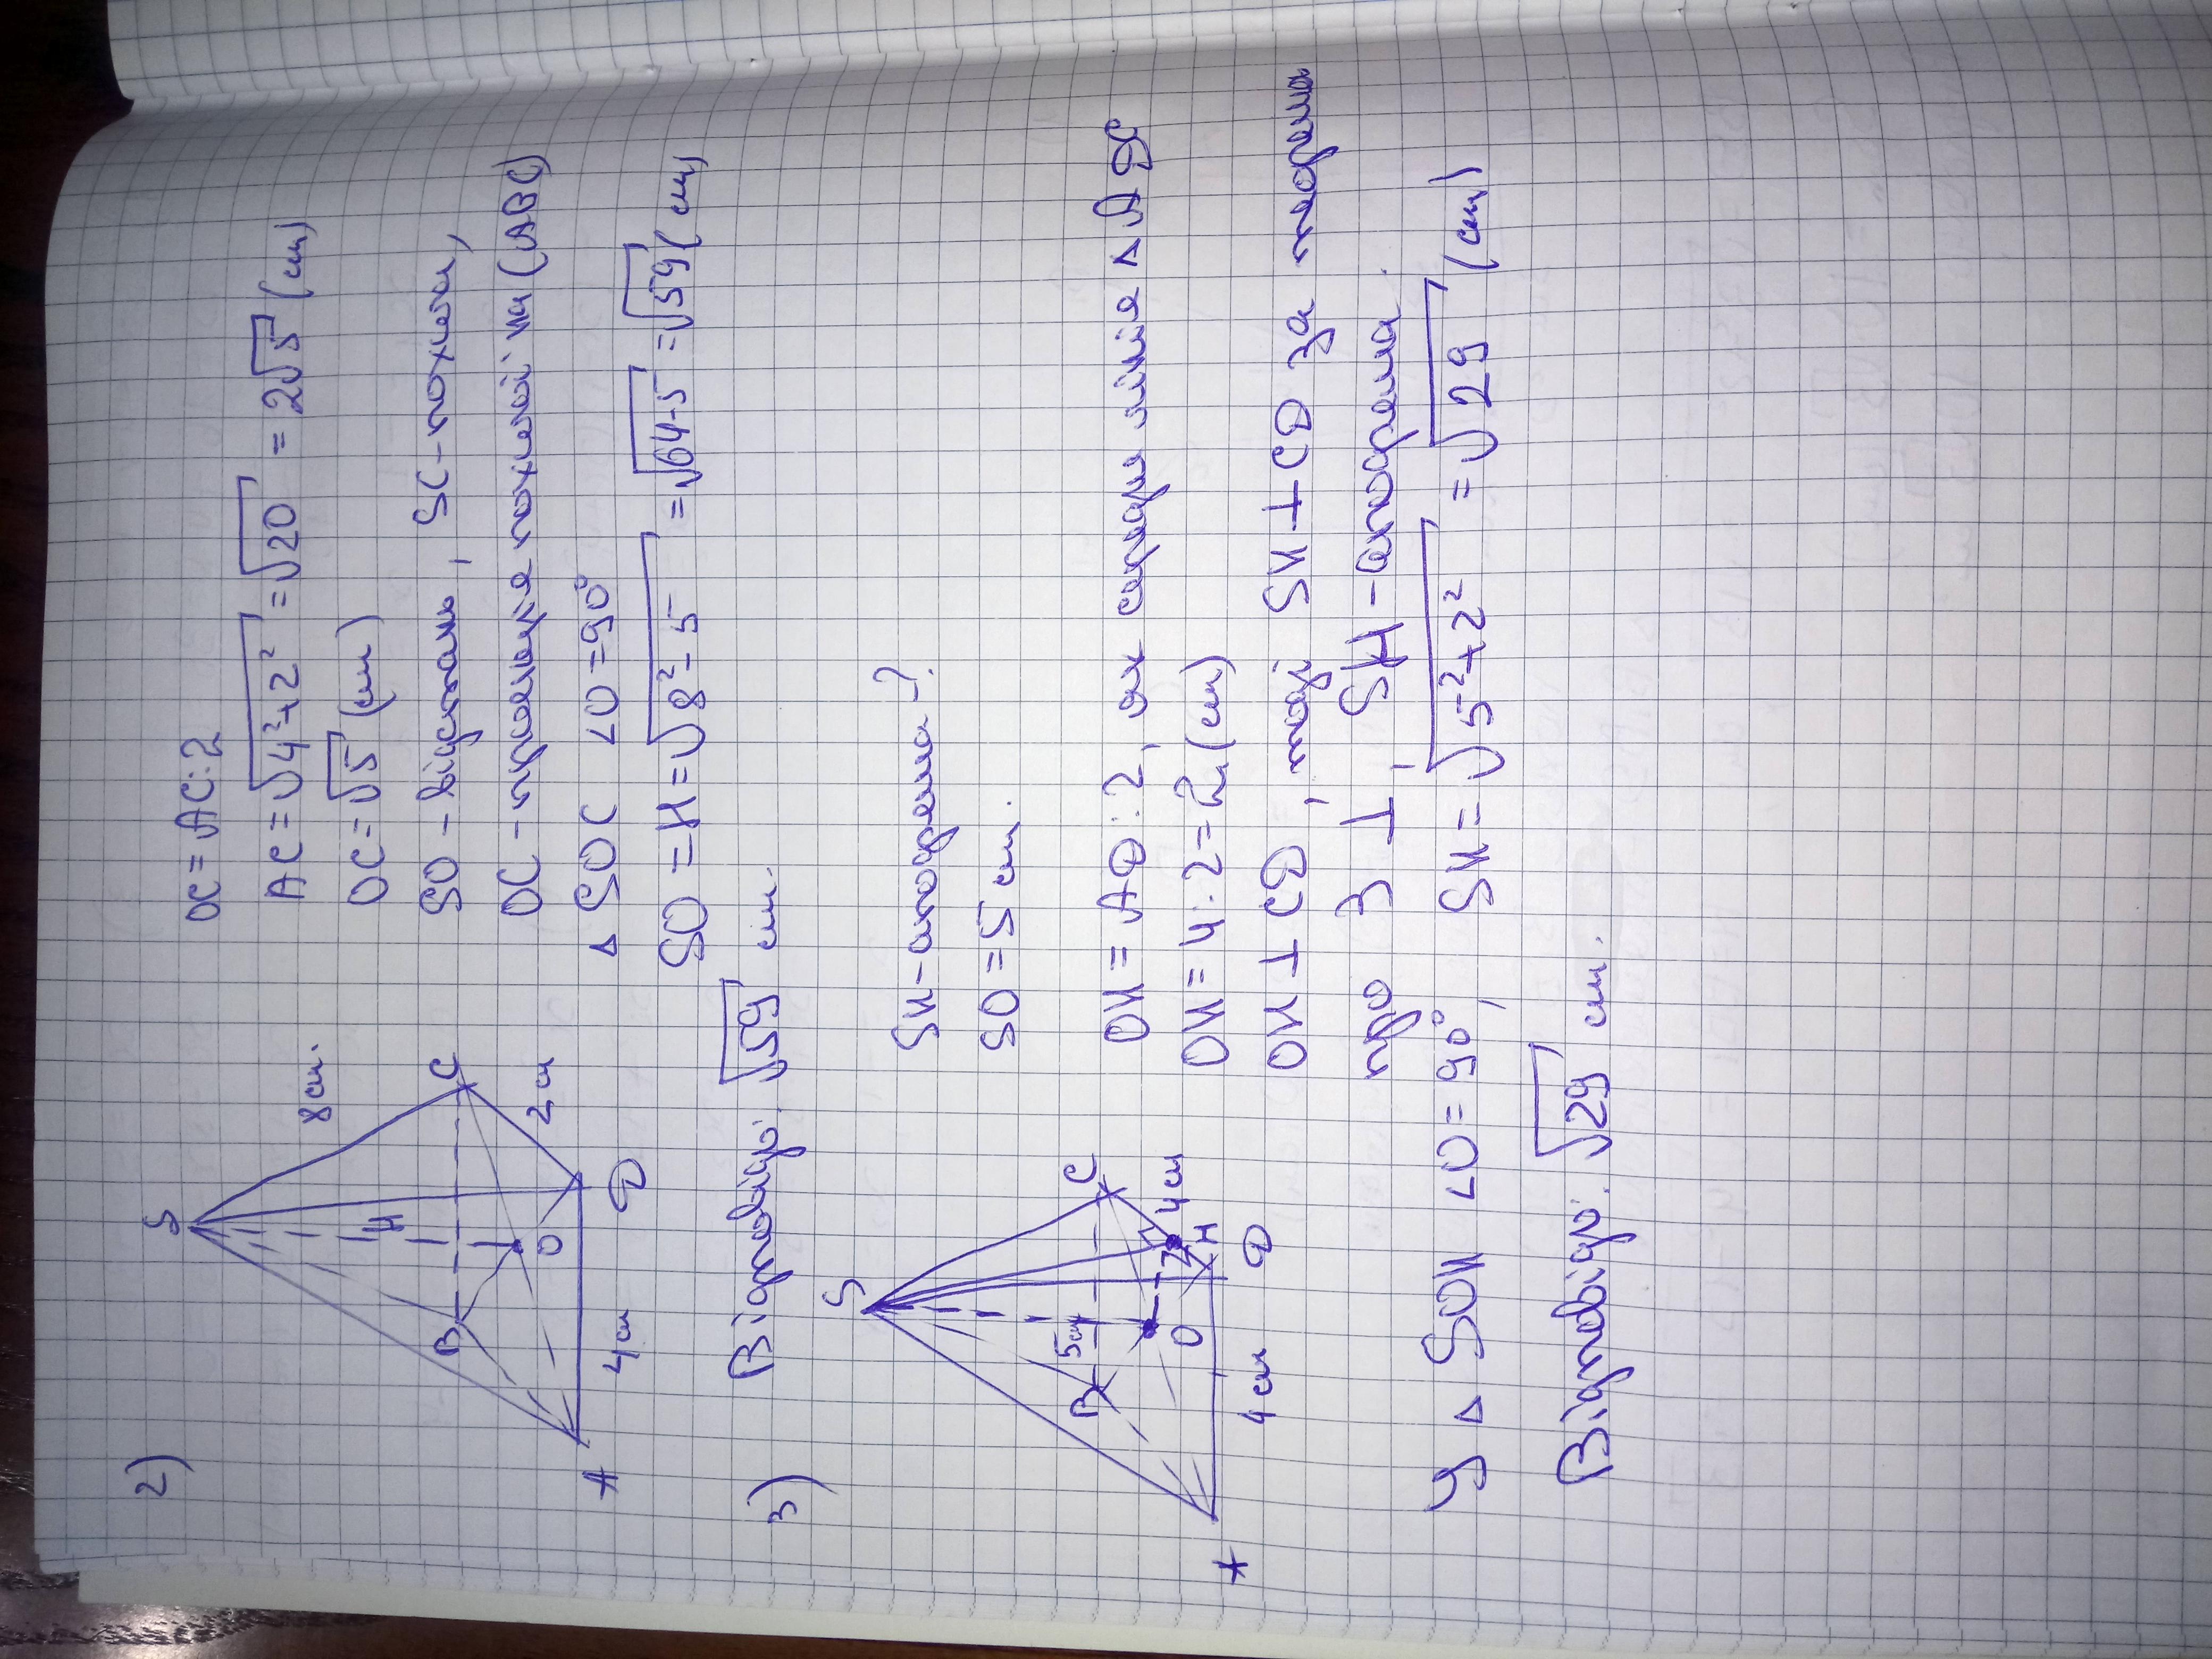 2)
S
8 см.
H
B
C
O
2 см
A
4 см
D
OC = AC:2
AC = √4²+2² = √20 = 2√5 (см)
OC = √5 (см)
SO – відстань, SC – похила,
OC – проекція похилої на (ABC)
△ SOC ∠O = 90°
SO = H = √8²-5 = √64-5 = √59 (см)
Відповідь: √59 см.
3)
S
5 см
B
C
O
4 см
H
A
4 см
D
SH – апофема – ?
SO = 5 см.
OH = AD:2, як середня лінія △ ADC
OH = 4:2 = 2 (см)
OH ⊥ CD, тоді SH ⊥ CD за теорема
про 3 ⊥, SH – апофема.
У △ SOH ∠O = 90°, SH = √5²+2² = √29 (см)
Відповідь: √29 см.